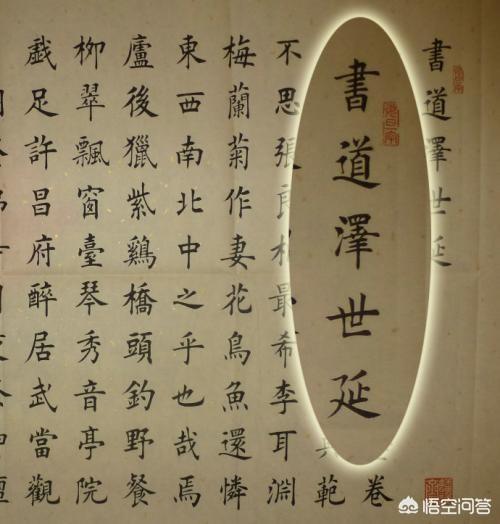 書道澤世延
書道澤世延
卷
範
不思張良相最希李耳淵
梅蘭菊作妻花鳥魚還憐
東西南北中之乎也哉焉
廬後獵紫鷄橋頭釣野餐
柳翠飄窗臺琴秀音亭院
戲足許昌府醉居武當觀
悟空问答